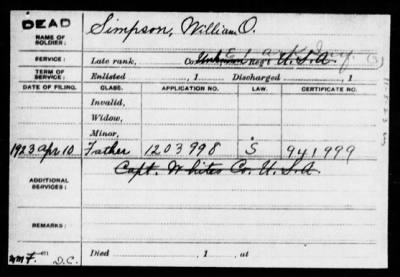 DEAD
NAME OF SOLDIER: Simpson, William O.
SERVICE: Late rank, Co. Regt U.S.A.
TERM OF SERVICE: Enlisted , 1 Discharged , 1
DATE OF FILING. CLASS. APPLICATION NO. LAW. CERTIFICATE NO.
Invalid,
Widow,
Minor,
1923 Apr 10 Father 1203998 S 941999
ADDITIONAL SERVICES: Capt. Whites Co. U.S.A.
REMARKS:
Died , 1 , at
D.C.